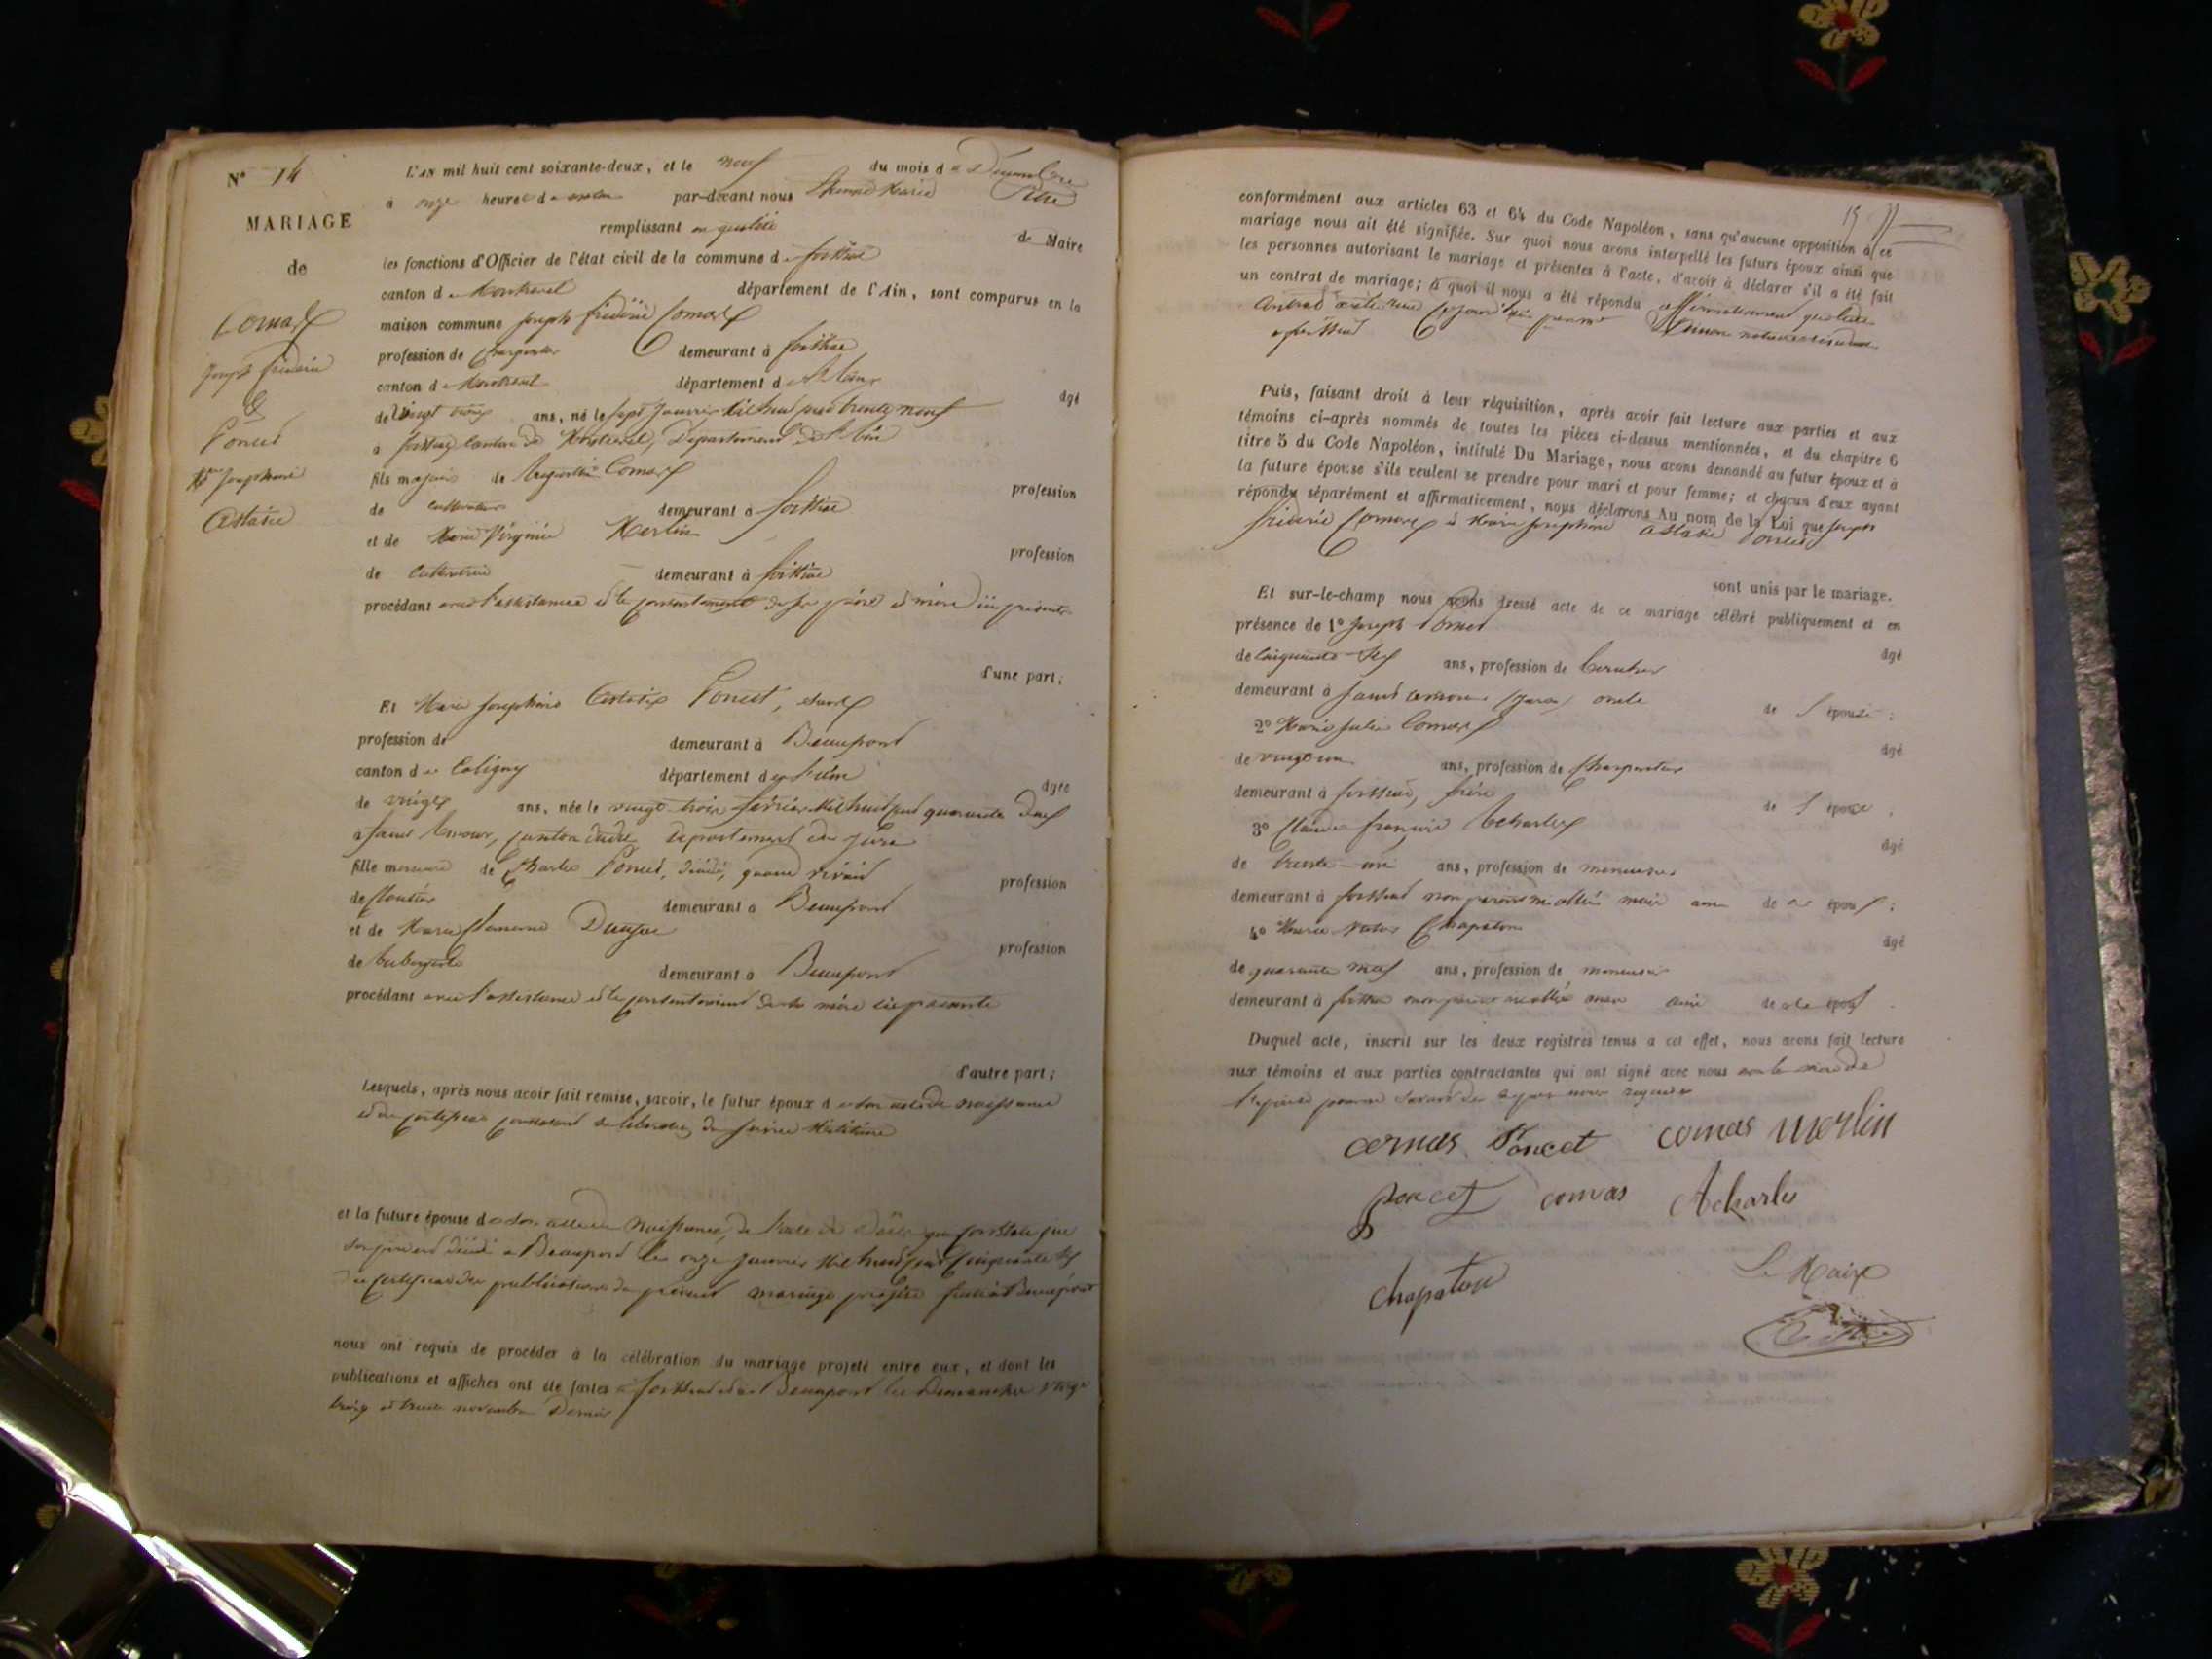 N° 14
MARIAGE
de
Comas
Joseph frédéric
&
Poncet
Mie Josephine
Astasie
L'AN mil huit cent soixante-deux, et le neuf du mois de Décembre
à onze heures du matin par-devant nous
remplissant en qualité de Maire
les fonctions d'Officier de l'état civil de la commune de foissiat
canton de Montrevel département de l'Ain, sont comparus en la
maison commune Joseph frédéric Comas
profession de charpentier demeurant à foissiat
canton de Montrevel département de l'Ain âgé
de vingt trois ans, né le sept Janvier mil huit cent trente neuf
a foissiat, canton de Montrevel, Département de l'Ain
fils majeur de Comas profession
de cultivateur demeurant à foissiat
et de Marie Virginie Merlin profession
de cultivatrice demeurant à foissiat
procédant avec l'assistance et le consentement de ses père et mère ici présents
d'une part;
Et Marie Josephine Astasie Poncet,
profession de demeurant à Beaupont
canton de Coligny département de l'Ain âgée
de vingt ans, née le vingt trois février mil huit cent quarante deux
à Saint Amour, canton dudit, département du Jura
fille mineure de Charles Poncet, décédé, quand vivait profession
de cloutier demeurant à Beaupont
et de Marie profession
de aubergiste demeurant à Beaupont
procédant avec l'assistance et le consentement de sa mère ici présente
d'autre part;
Lesquels, après nous avoir fait remise, savoir, le futur époux de son acte de naissance
et du certificat constatant sa libération du service Militaire
et la future épouse de son acte de Naissance, de l'acte de décès qui constate que
son père est décédé a Beaupont le onze Janvier mil huit cent cinquante
du certificat des publications du présent mariage projeté faites à Beaupont
nous ont requis de procéder à la célébration du mariage projeté entre eux, et dont les
publications et affiches ont été faites à foissiat et à Beaupont les Dimanches vingt
trois et trente novembre Dernier
15
conformément aux articles 63 et 64 du Code Napoléon, sans qu'aucune opposition à ce
mariage nous ait été signifiée. Sur quoi nous avons interpellé les futurs époux ainsi que
les personnes autorisant le mariage et présentes à l'acte, d'avoir à déclarer s'il a été fait
un contrat de mariage; à quoi il nous a été répondu affirmativement que ledit
contrat a été reçu ce jourd'hui par me notaire résidant
a foissiat
Puis, faisant droit à leur réquisition, après avoir fait lecture aux parties et aux
témoins ci-après nommés de toutes les pièces ci-dessus mentionnées, et du chapitre 6
titre 5 du Code Napoléon, intitulé Du Mariage, nous avons demandé au futur époux et à
la future épouse s'ils veulent se prendre pour mari et pour femme; et chacun d'eux ayant
répondu séparément et affirmativement, nous déclarons Au nom de la Loi que Joseph
frédéric Comas et Marie Josephine Astasie Poncet
sont unis par le mariage.
Et sur-le-champ nous avons dressé acte de ce mariage célébré publiquement et en
présence de 1° Joseph Poncet âgé
de cinquante ans, profession de
demeurant à Saint amour (Jura) oncle de l'épouse;
2° Marie Julien Comas âgé
de vingt un ans, profession de charpentier
demeurant à foissiat, frère de l'époux.
3° Claude françois Acharles âgé
de trente un ans, profession de menuisier
demeurant à foissiat non parent ni allié mais ami des époux;
4° Marie Chapaton âgé
de quarante neuf ans, profession de menuisier
demeurant à foissiat non parent ni allié mais ami des époux.
Duquel acte, inscrit sur les deux registres tenus a cet effet, nous avons fait lecture
aux témoins et aux parties contractantes qui ont signé avec nous
comas Poncet comas merlin
poncet comas Acharles
chapaton
Le Maire